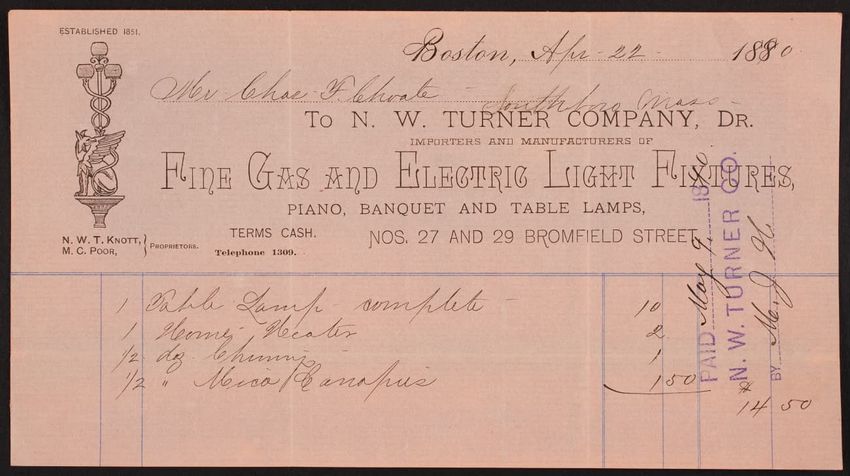 ESTABLISHED 1851.
Boston, Apr 22 1880.
Mr Chas F Choate Southboro Mass
TO N. W. TURNER COMPANY, DR.
IMPORTERS AND MANUFACTURERS OF
FINE GAS AND ELECTRIC LIGHT FIXTURES,
PIANO, BANQUET AND TABLE LAMPS,
TERMS CASH. NOS. 27 AND 29 BROMFIELD STREET
N. W. T. KNOTT, M. C. POOR, } PROPRIETORS. Telephone 1309.
1 Table Lamp complete 10
1 Home Heater 2
1/2 doz. Chimnies 1
1/2 " Mica Canopies 1 50
$14 50
PAID May 9, 18
N. W. TURNER CO.
BY M. J. H.